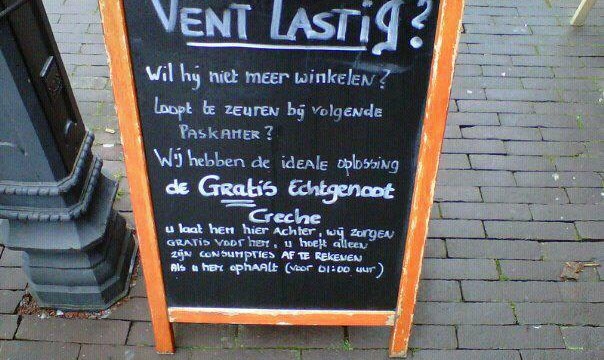 VENT LASTIG?
Wil hij niet meer winkelen?
Loopt te zeuren bij volgende
PASKAMER?
Wij hebben de ideale oplossing
de Gratis Echtgenoot
Creche
u laat hem hier achter, wij zorgen
gratis voor hem, u hoeft alleen
zijn consumpties af te rekenen
als u hem ophaalt (voor 01:00 uur)